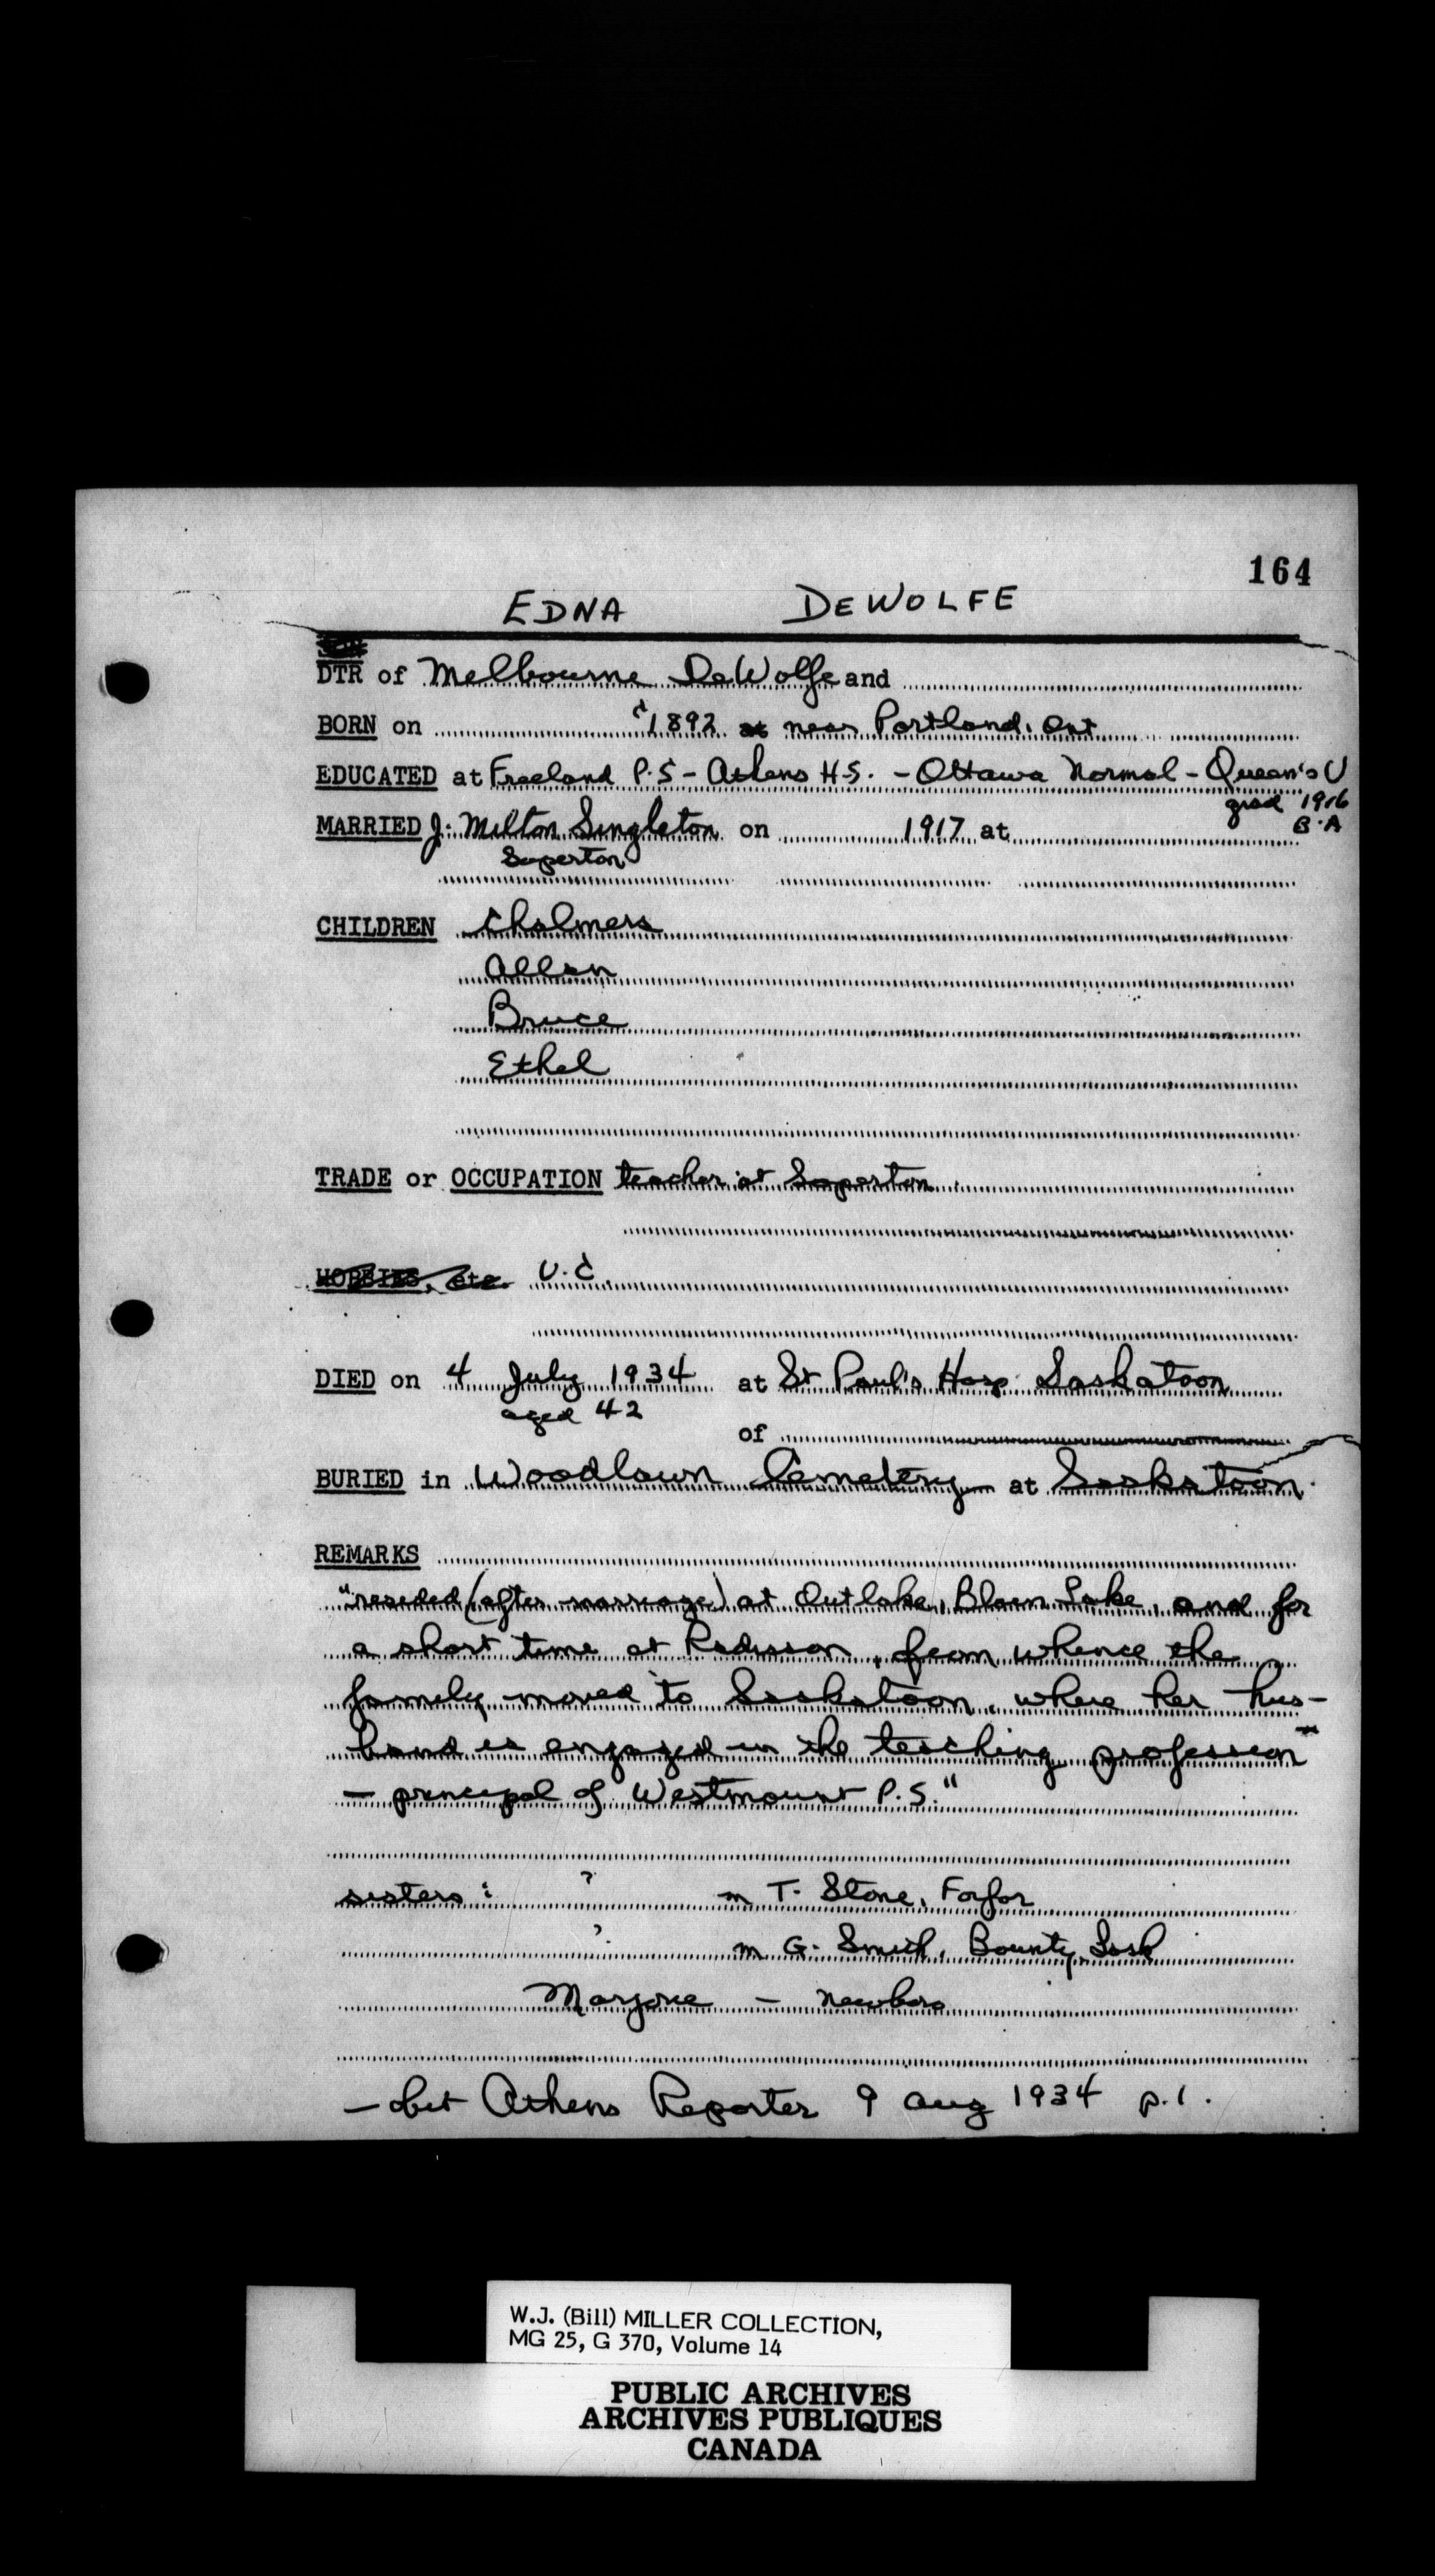 164
EDNA DEWOLFE
DTR of Melbourne DeWolfe and
BORN on c1892 at near Portland, Ont
EDUCATED at Freeland P.S - Athens H.S. - Ottawa Normal - Queen's U
grad 1916
B.A
MARRIED J. Milton Singleton on 1917 at
Soperton
CHILDREN Chalmers
Allan
Bruce
Ethel
TRADE or OCCUPATION teacher at Soperton
HOBBIES, etc. U.C.
DIED on 4 July 1934 at St Paul's Hosp Saskatoon
aged 42
of
BURIED in Woodlawn Cemetery at Saskatoon
REMARKS
"resided (after marriage) at Outlake, Blaen Lake, and for
a short time at Radisson, from whence the
family moved to Saskatoon, where her hus-
band is engaged in the teaching profession"
- principal of Westmount P.S."
sisters: ? m T. Stone, Forfar
? m G. Smith, Bounty, Sask
Marjorie - Newboro
- obit Athens Reporter 9 Aug 1934 p.1.
W.J. (Bill) MILLER COLLECTION,
MG 25, G 370, Volume 14
PUBLIC ARCHIVES
ARCHIVES PUBLIQUES
CANADA